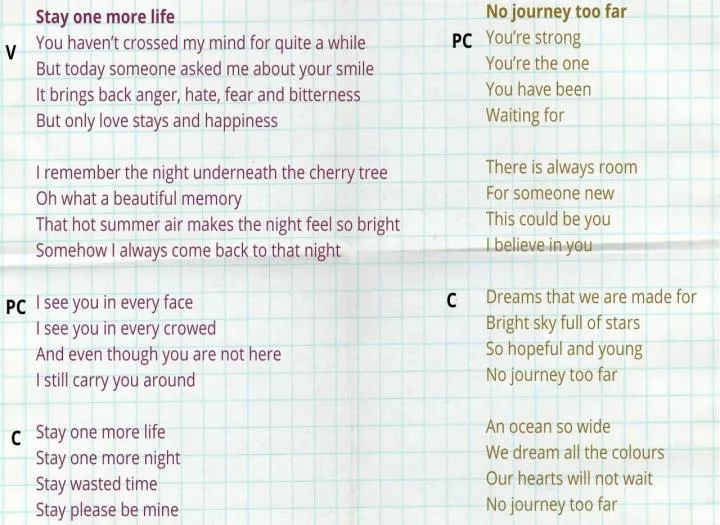 Stay one more life
V
You haven't crossed my mind for quite a while
But today someone asked me about your smile
It brings back anger, hate, fear and bitterness
But only love stays and happiness
I remember the night underneath the cherry tree
Oh what a beautiful memory
That hot summer air makes the night feel so bright
Somehow I always come back to that night
PC
I see you in every face
I see you in every crowed
And even though you are not here
I still carry you around
C
Stay one more life
Stay one more night
Stay wasted time
Stay please be mine
No journey too far
PC
You're strong
You're the one
You have been
Waiting for
There is always room
For someone new
This could be you
I believe in you
C
Dreams that we are made for
Bright sky full of stars
So hopeful and young
No journey too far
An ocean so wide
We dream all the colours
Our hearts will not wait
No journey too far